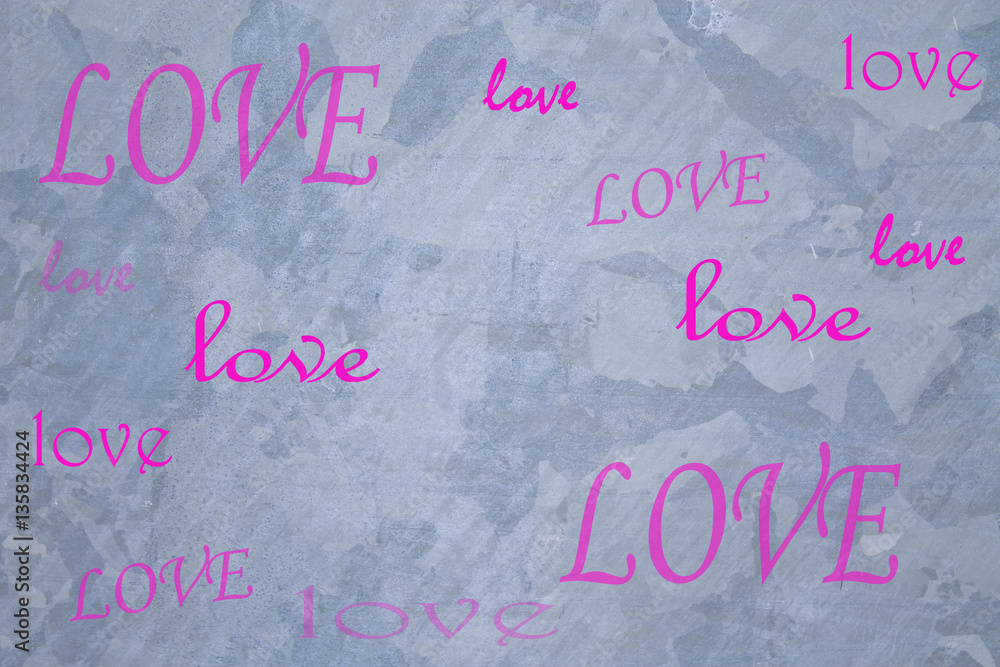 LOVE
love
love
LOVE
love
love
love
love
love
LOVE
LOVE
love
Adobe Stock | #135834424